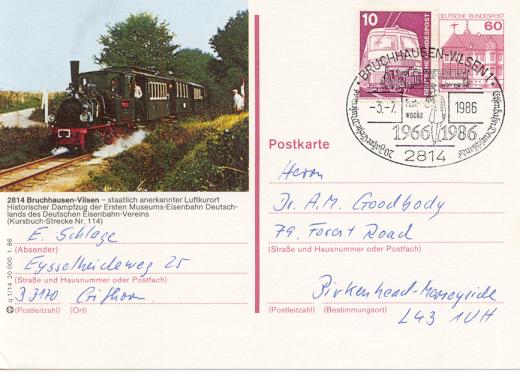 2814 Bruchhausen-Vilsen – staatlich anerkannter Luftkurort
Historischer Dampfzug der Ersten Museums-Eisenbahn Deutsch-
lands des Deutschen Eisenbahn-Vereins
(Kursbuch-Strecke Nr. 114)
E. Schlage
(Absender)
Eysselheideweg 25
(Straße und Hausnummer oder Postfach)
D 3170 Gifhorn
(Postleitzahl) (Ort)
q 1/14 20 000 1. 86
10
DEUTSCHE BUNDESPOST
DEUTSCHE BUNDESPOST
60
BRUCHHAUSEN-VILSEN 1
-3.-7.
1986
1966 1986
2814
Postkarte
Herrn
Dr. A.M. Goodbody
79, Forest Road
(Straße und Hausnummer oder Postfach)
Birkenhead-Merseyside
(Postleitzahl) (Bestimmungsort)
L43 1UH